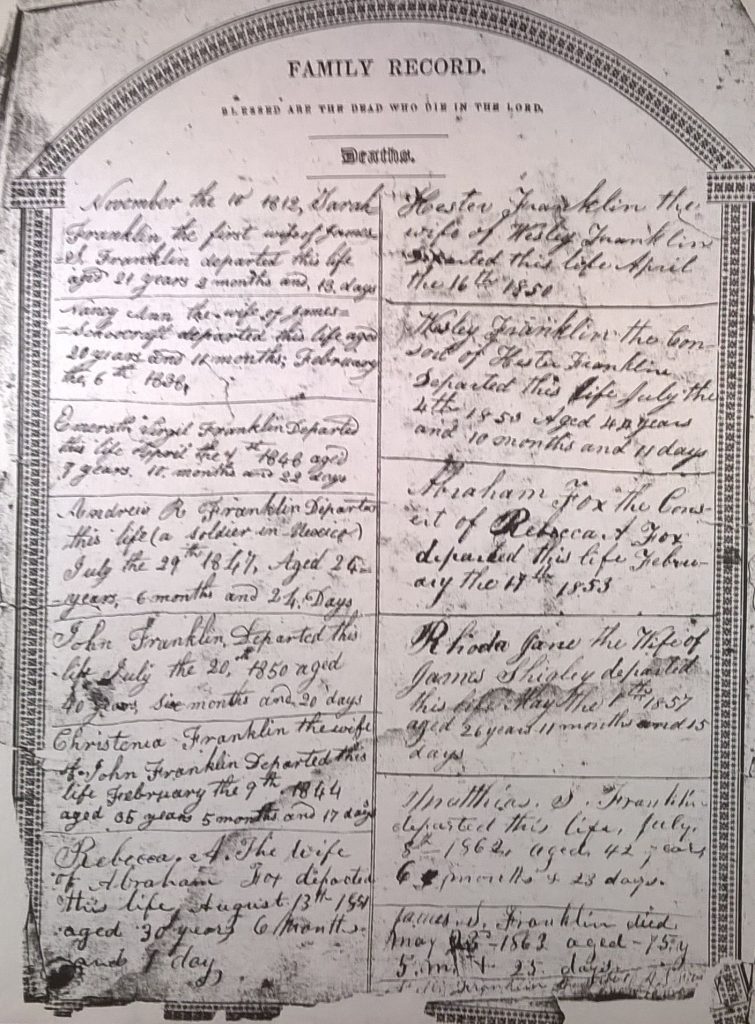 FAMILY RECORD.
BLESSED ARE THE DEAD WHO DIE IN THE LORD.
Deaths.
November the 10 1812, Sarah
Franklin the first wife of James
S. Franklin departed this life
aged 21 years 2 months and 13 days
Nancy Ann the wife of James
Schoocraft departed this life aged
20 years and 11 months; February
the 6th 1838,
Emerath Virgil Franklin Departed
this life April the 1846 aged
7 years 10 months and 22 days
Andrew R Franklin Departed
this life (a soldier in Mexico)
July the 29th 1847, Aged 24
years, 6 months and 24 Days
John Franklin, Departed this
life July the 20th 1850 aged
40 years, six months and 20 days
Christenia Franklin the wife
of John Franklin Departed this
life February the 9th 1844
aged 35 years 5 months and 17 days
Rebecca. A. The wife
of Abraham Fox departed
this life August 13th
aged 30 years 6 Months
and 1 day
Hester Franklin the
wife of Wesley Franklin
departed this life April
the 16th 1850
Wesley Franklin the Con-
sort of Hester Franklin
Departed this life July the
4th 1853 Aged 44 years
and 10 months and 11 days
Abraham Fox the Cons-
ort of Rebecca A Fox
departed this life Febru-
ary the 17th 1853
Rhoda Jane the Wife of
James Shigley departed
this life May the 1th 1857
aged 26 years 11 months and 15
days
Matthias. S. Franklin
departed this life, July,
8th 1862, aged 42 years
6 months & 23 days.
James. S. Franklin died
may 1863 aged 75 y
5. m. + 25 days